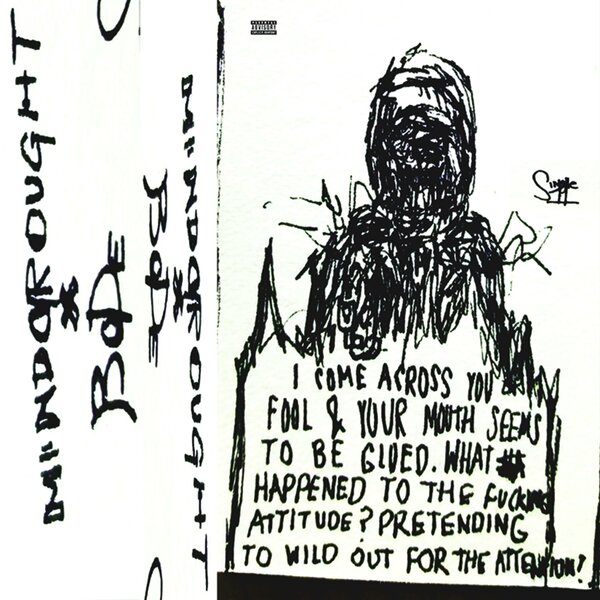 MIINDDROUGHT
X
BODE
MIINDDROUGHT
X
BODE
PARENTAL
ADVISORY
EXPLICIT CONTENT
SINGLE
I COME ACROSS YOU
FOOL & YOUR MOUTH SEEMS
TO BE GLUED. WHAT
HAPPENED TO THE FUCKING
ATTITUDE? PRETENDING
TO WILD OUT FOR THE ATTENTION?